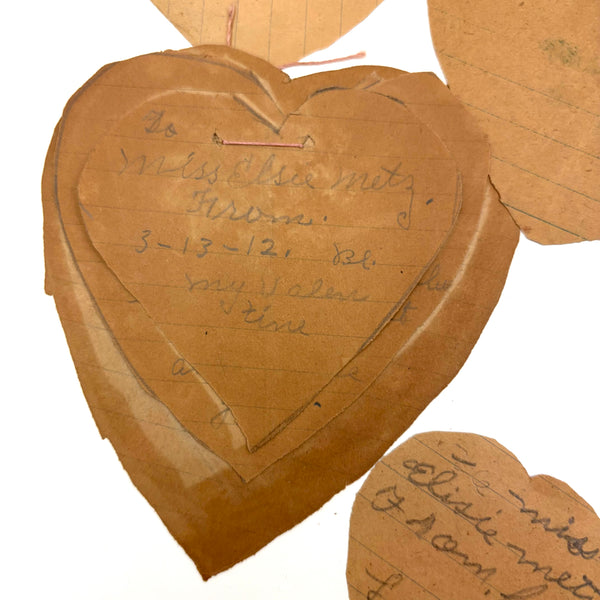 To
Miss Elsie Metz.
From.
3-13-12. Be.
My Valen
tine
a
To miss
Elisie metz
From.